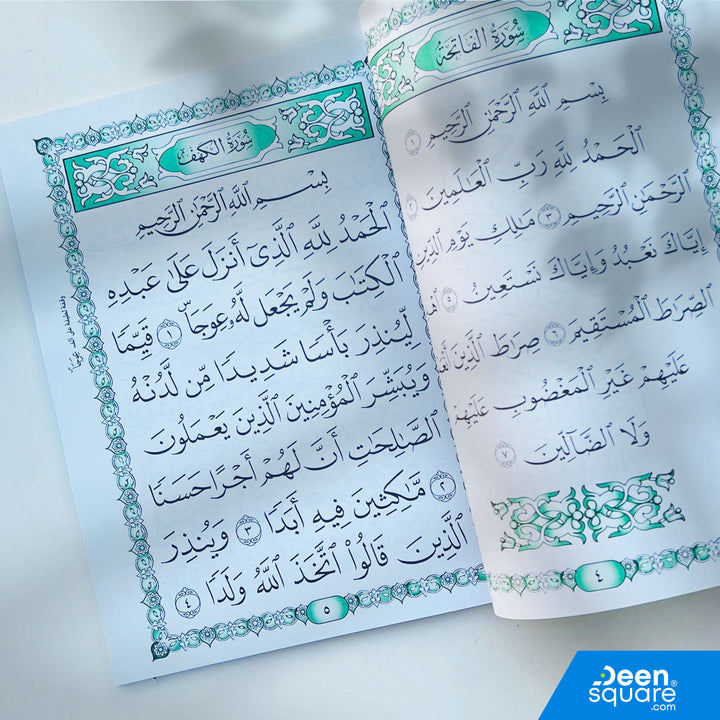 سُورَةُ الْفَاتِحَةِ
بِسْمِ ٱللَّهِ ٱلرَّحْمَٰنِ ٱلرَّحِيمِ ١
ٱلْحَمْدُ لِلَّهِ رَبِّ ٱلْعَٰلَمِينَ ٢
ٱلرَّحْمَٰنِ ٱلرَّحِيمِ ٣ مَٰلِكِ يَوْمِ ٱلدِّينِ
إِيَّاكَ نَعْبُدُ وَإِيَّاكَ نَسْتَعِينُ ٥
ٱلصِّرَٰطَ ٱلْمُسْتَقِيمَ ٦ صِرَٰطَ ٱلَّذِينَ
عَلَيْهِمْ غَيْرِ ٱلْمَغْضُوبِ عَلَيْهِمْ
وَلَا ٱلضَّآلِّينَ ٧
٤
سُورَةُ الْكَهْفِ
بِسْمِ ٱللَّهِ ٱلرَّحْمَٰنِ ٱلرَّحِيمِ
ٱلْحَمْدُ لِلَّهِ ٱلَّذِىٓ أَنزَلَ عَلَىٰ عَبْدِهِ
ٱلْكِتَٰبَ وَلَمْ يَجْعَل لَّهُۥ عِوَجَاۜ ١ قَيِّمًا
لِّيُنذِرَ بَأْسًا شَدِيدًا مِّن لَّدُنْهُ
وَيُبَشِّرَ ٱلْمُؤْمِنِينَ ٱلَّذِينَ يَعْمَلُونَ
ٱلصَّٰلِحَٰتِ أَنَّ لَهُمْ أَجْرًا حَسَنًا
٢ مَّٰكِثِينَ فِيهِ أَبَدًا ٣ وَيُنذِرَ
ٱلَّذِينَ قَالُوا۟ ٱتَّخَذَ ٱللَّهُ وَلَدًا ٤
٥
Deen
square®
.com